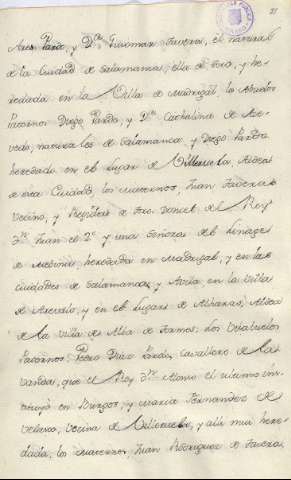 21
Ares Pardo, y D.ª Guiomar Taveras, el natural
de la Ciudad de Salamanca, ella de Toro, y he-
redada en la Villa de Madrigal, lo Abuelos
Paternos Diego Pardo, y D.ª Cathalina de Ace-
vedo, naturales de Salamanca, y Diego Pardo
heredado en el lugar de Villoruela, Aldea
de esta Ciudad, los maternos, Juan Tavera
Vecino, y Regidor de Toro Doncel del Rey
D.n Juan el 2.º y una Señora del Linage
de Medina, heredada en Madrigal, y en las
Ciudades de Salamanca, y Avila, en la Villa
de Arevalo, y en el lugar de Aldea,
de la Villa de Alba de Tormes. Los Visabuelos
Paternos: Pedro Diaz Pardo, Cavallero de la
vanda, que el Rey D.n Alonso el ultimo ins-
tituyó en Burgos, y Maria Fernandez de
Velasco, Vecina de Villoruela, y alli muy here-
dada, los maternos Juan Rodriguez de Tavera,